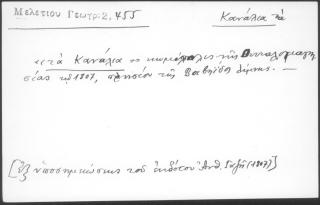 Μελετίου Γεωγρ. 2, 455
Κανάλια τὰ
«τὰ Κανάλια » κωμόπολις τῆς Θετταλομαγνησίας τῷ 1807, πλησίον τῆς Βοιβηΐδος λίμνης. —
[Ἐξ ὑποσημειώσεως τοῦ ἐκδότου Ἀνθ. Γαζῆ (1807)]